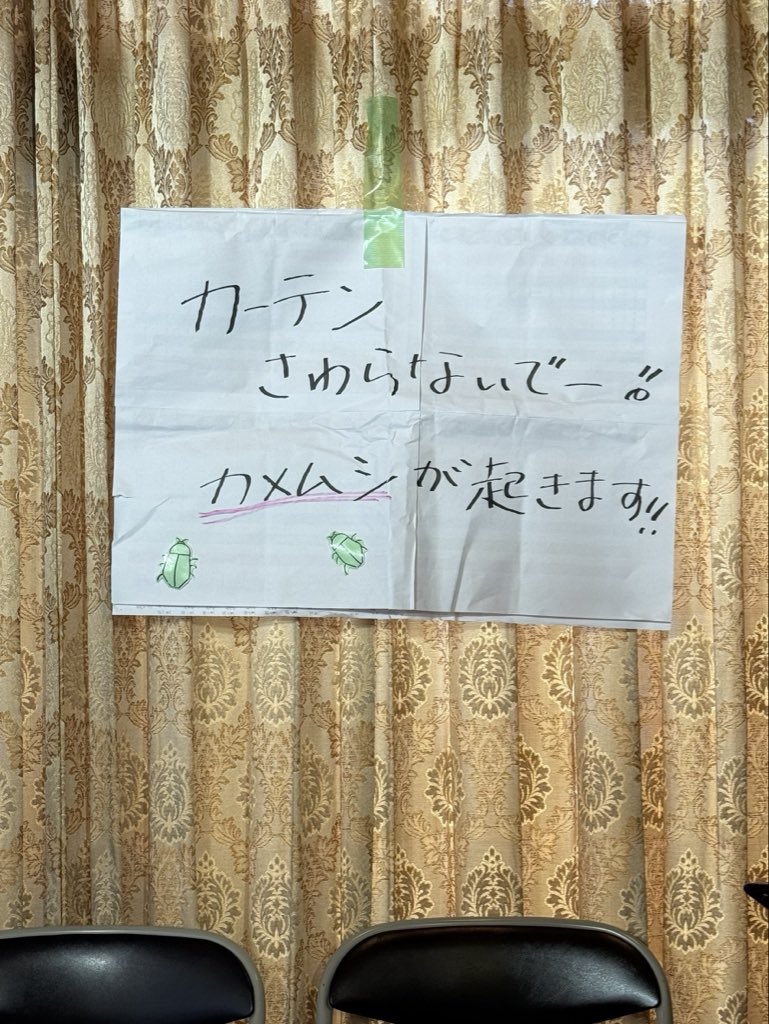 カーテン
さわらないでー!!
カメムシが起きます!!